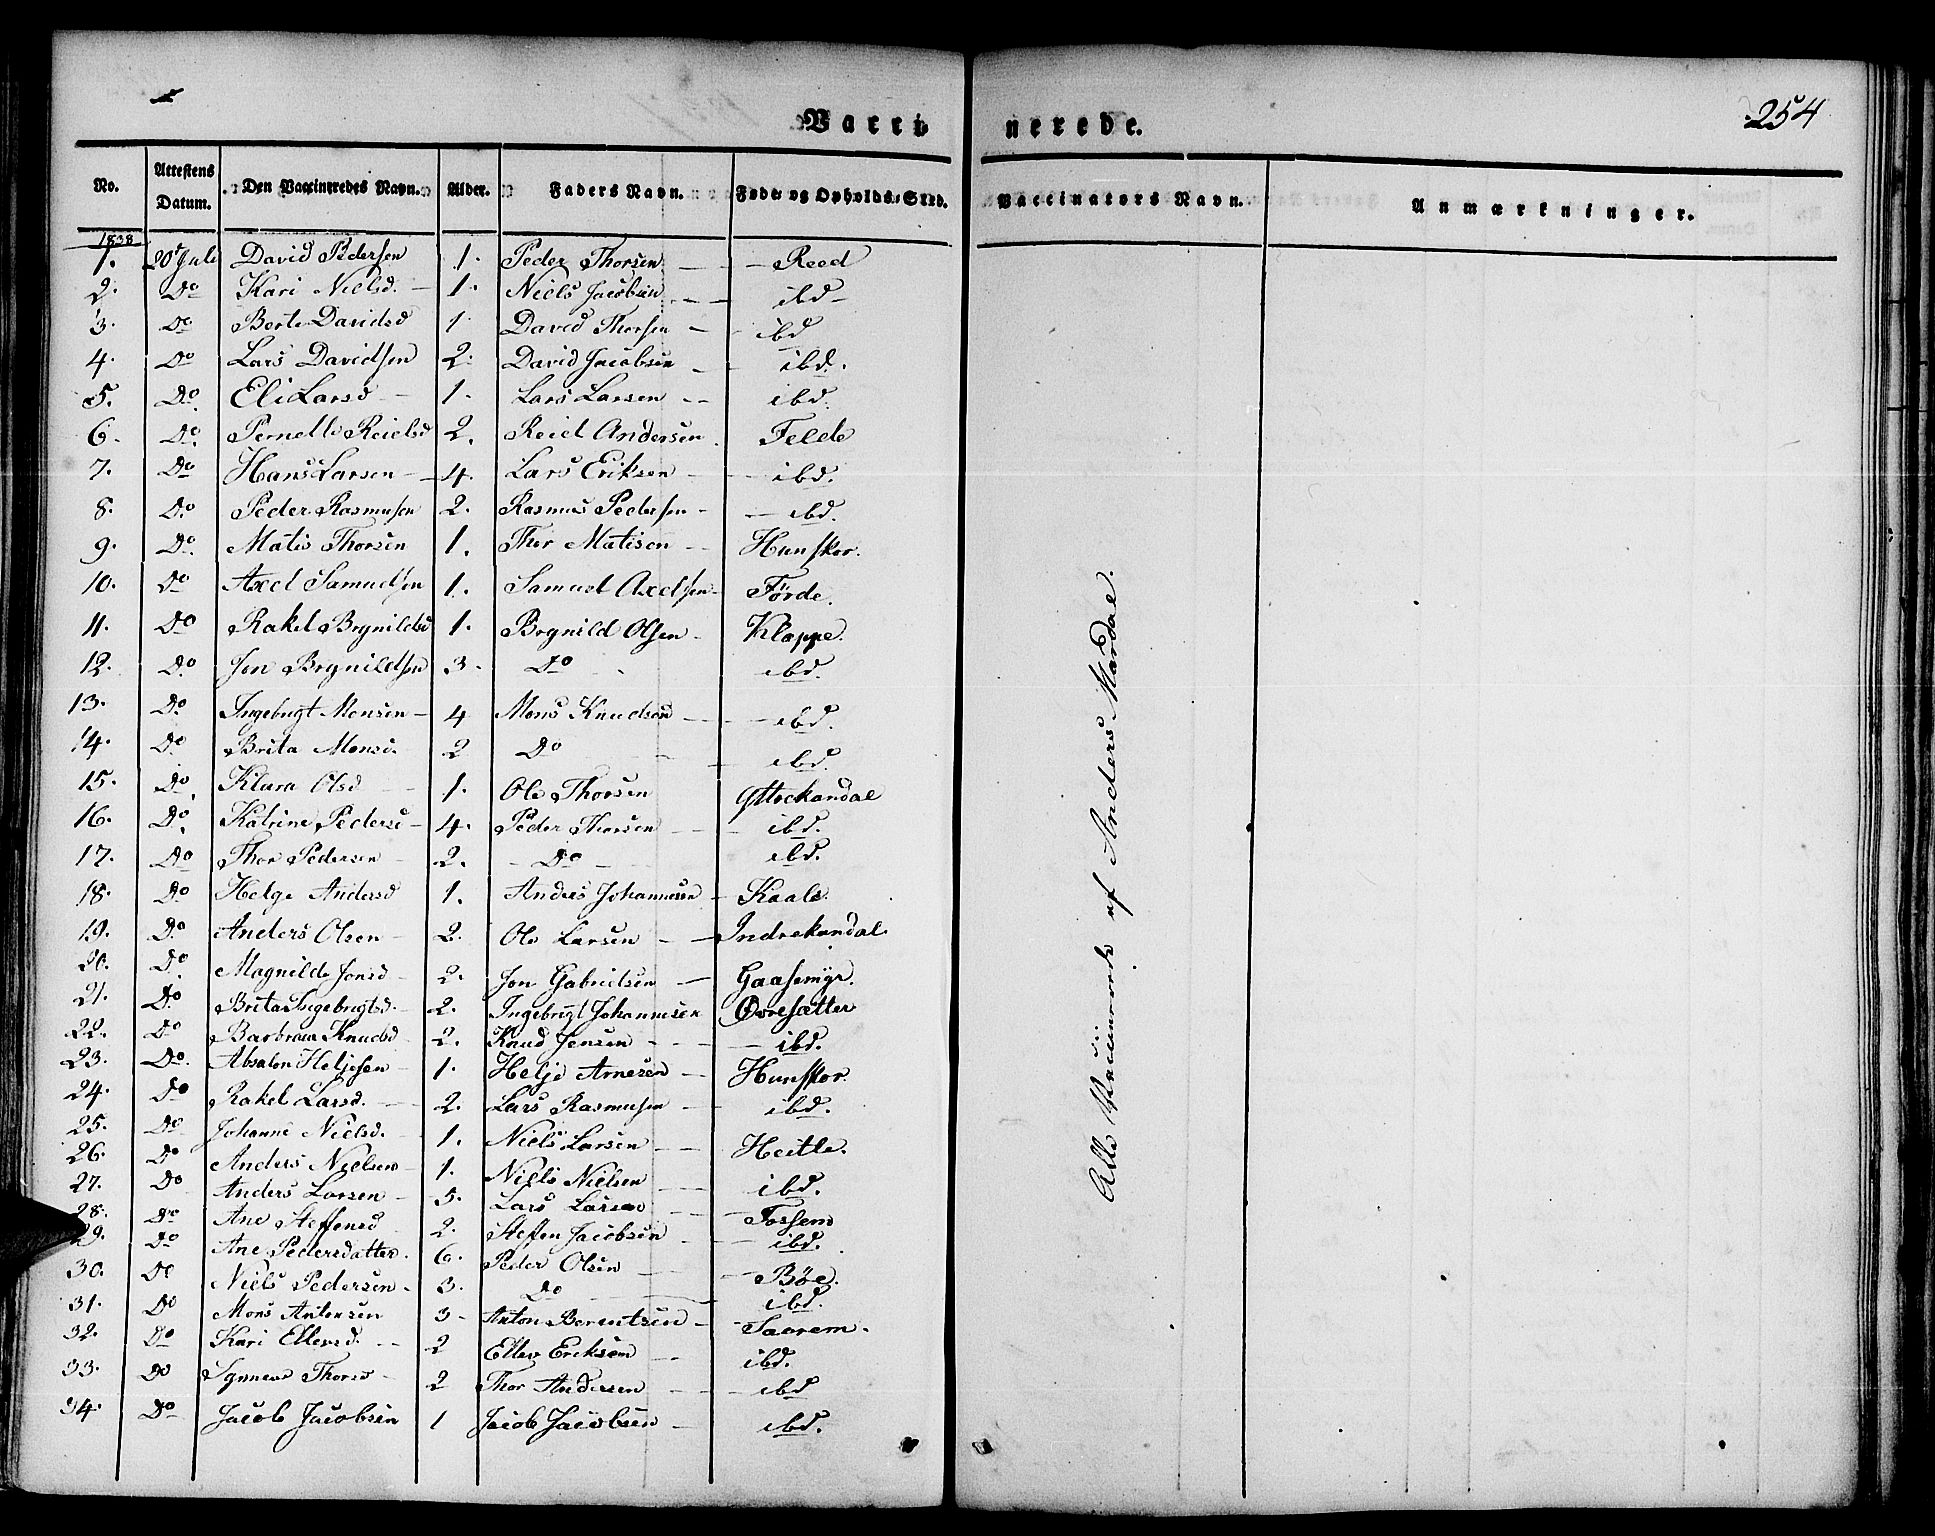 254
Vacci nerede.
No. Attestens Datum. Den Vaccineredes Navn. Alder. Faders Navn. Føde- og Opholds-Sted. Vaccinators Navn. Anmærkninger.
1838
1. 20 Juli David Pedersen 1. Peder Thorsen Reed
2. Do Kari Nielsd. 1. Niels Jacobsen ibd
3. Do Berte Davidsd 1. David Thorsen ibd
4. Do Lars Davidsen 2. David Jacobsen ibd.
5. Do Eli Larsd 1. Lars Larsen ibd.
6. Do Pernelle Reielsd 2. Reiel Andersen Felde
7. Do Hans Larsen 4. Lars Eriksen ibd.
8. Do Peder Rasmusen 2. Rasmus Pedersen ibd.
9. Do Matis Thorsen 1. Thor Matisen Hunskor.
10. Do Axel Samuelsen 1. Samuel Axelsen Förde.
11. Do Rakel Brynildsd 1. Brynild Olsen Kloppe.
12. Do Jon Brynildsen 3. Do ibd.
13. Do Ingebrigt Monsen 4 Mons Knudsen ibd.
14. Do Brita Monsd. 2 Do ibd.
15. Do Klara Olsd 1. Ole Thorsen Yttrekandal
16. Do Katrine Pedersd 4. Peder Thorsen ibd.
17. Do Thor Pedersen 2. Do ibd.
18. Do Helge Andersd 1. Anders Johannesen Kaale.
19. Do Anders Olsen 2. Ole Larsen Indrekandal.
20. Do Magnilde Jonsd 2. Jon Gabrielsen Gaasemyr.
21. Do Brita Ingebrigtsd. 2. Ingebrigt Johannesen Øvresætter
22. Do Barbraa Knudsd 2. Knud Jensen ibd.
23. Do Absalon Heljesen 1. Helje Arnesen Hunskor.
24. Do Rakel Larsd. 2. Lars Rasmusen ibd.
25. Do Johanne Nielsd. 1. Niels Larsen Heitle.
26. Do Anders Nielsen 1. Niels Nielsen ibd.
27. Do Anders Larsen 5. Lars Larsen Fossem
28. Do Ane Steffensd 2. Steffen Jacobsen ibd.
29. Do Ane Pedersdatter. 6. Peder Olsen Böe.
30. Do Niels Pedersen 3. Do ibd.
31. Do Mons Antonsen 3 Anton Berentsen Saarem.
32. Do Kari Ellevsd. 2 Ellev Eriksen ibd.
33. Do Synneve Thorsd 2 Thor Andersen ibd
34. Do Jacob Jacobsen 1 Jacob Jacobsen ibd.
Alle Vaccinerede af Anders Mardal.